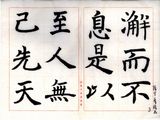 澥而不
息是以
至人無
己先天